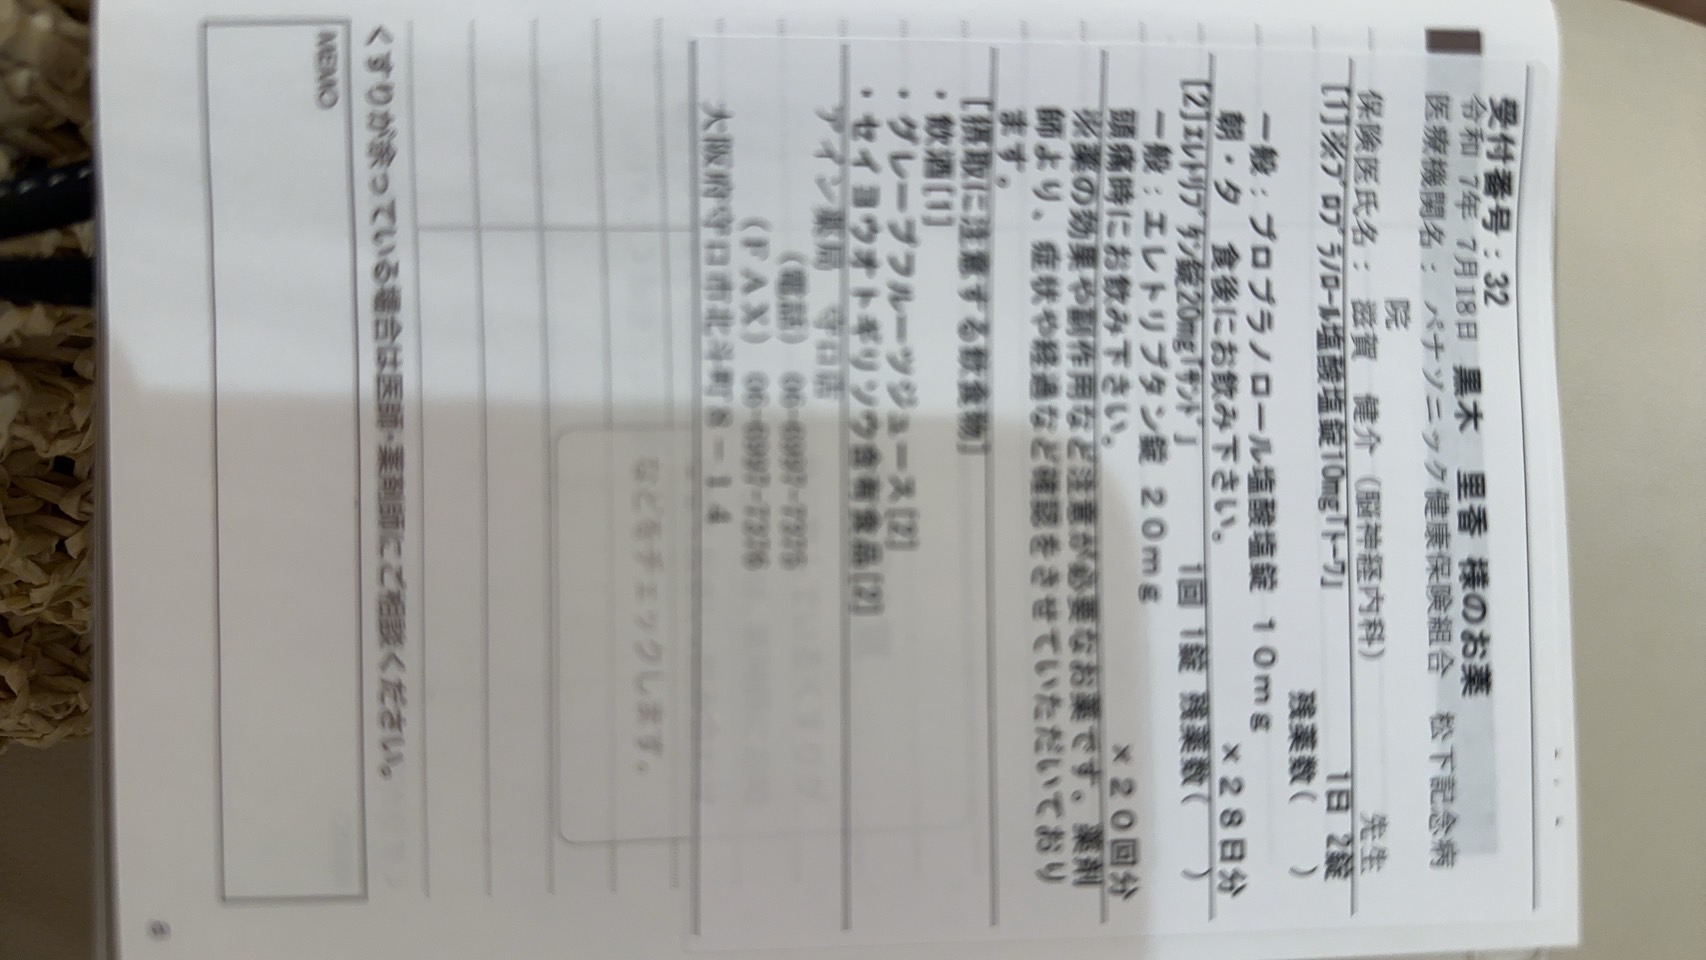 受付番号：32
令和 7年 7月18日 黒木 里香 様のお薬
医療機関名： パナソニック健康保険組合 松下記念病
院
保険医氏名： 滋賀 健介 (脳神経内科) 先生
[1]※ﾌﾟﾛﾌﾟﾗﾉﾛｰﾙ塩酸塩錠10mg｢ﾄｰﾜ｣ 1日 2錠
残薬数( )
一般：プロプラノロール塩酸塩錠 １０ｍｇ
朝・夕 食後にお飲み下さい。 ×２８日分
[2]ｴﾚﾄﾘﾌﾟﾀﾝ錠20mg｢ｻﾝﾄﾞ｣ 1回 1錠 残薬数( )
一般：エレトリプタン錠 ２０ｍｇ
頭痛時にお飲み下さい。 ×２０回分
※薬の効果や副作用など注意が必要なお薬です。薬剤
師より、症状や経過など確認をさせていただいており
ます。
[摂取に注意する飲食物]
・飲酒[1]
・グレープフルーツジュース[2]
・セイヨウオトギリソウ含有食品[2]
アイン薬局 守口店
(電話) 06-6997-7325
(ＦＡＸ) 06-6997-7326
大阪府守口市北斗町８－１４
などもチェックします。
くすりが余っている場合は医師・薬剤師にご相談ください。
MEMO